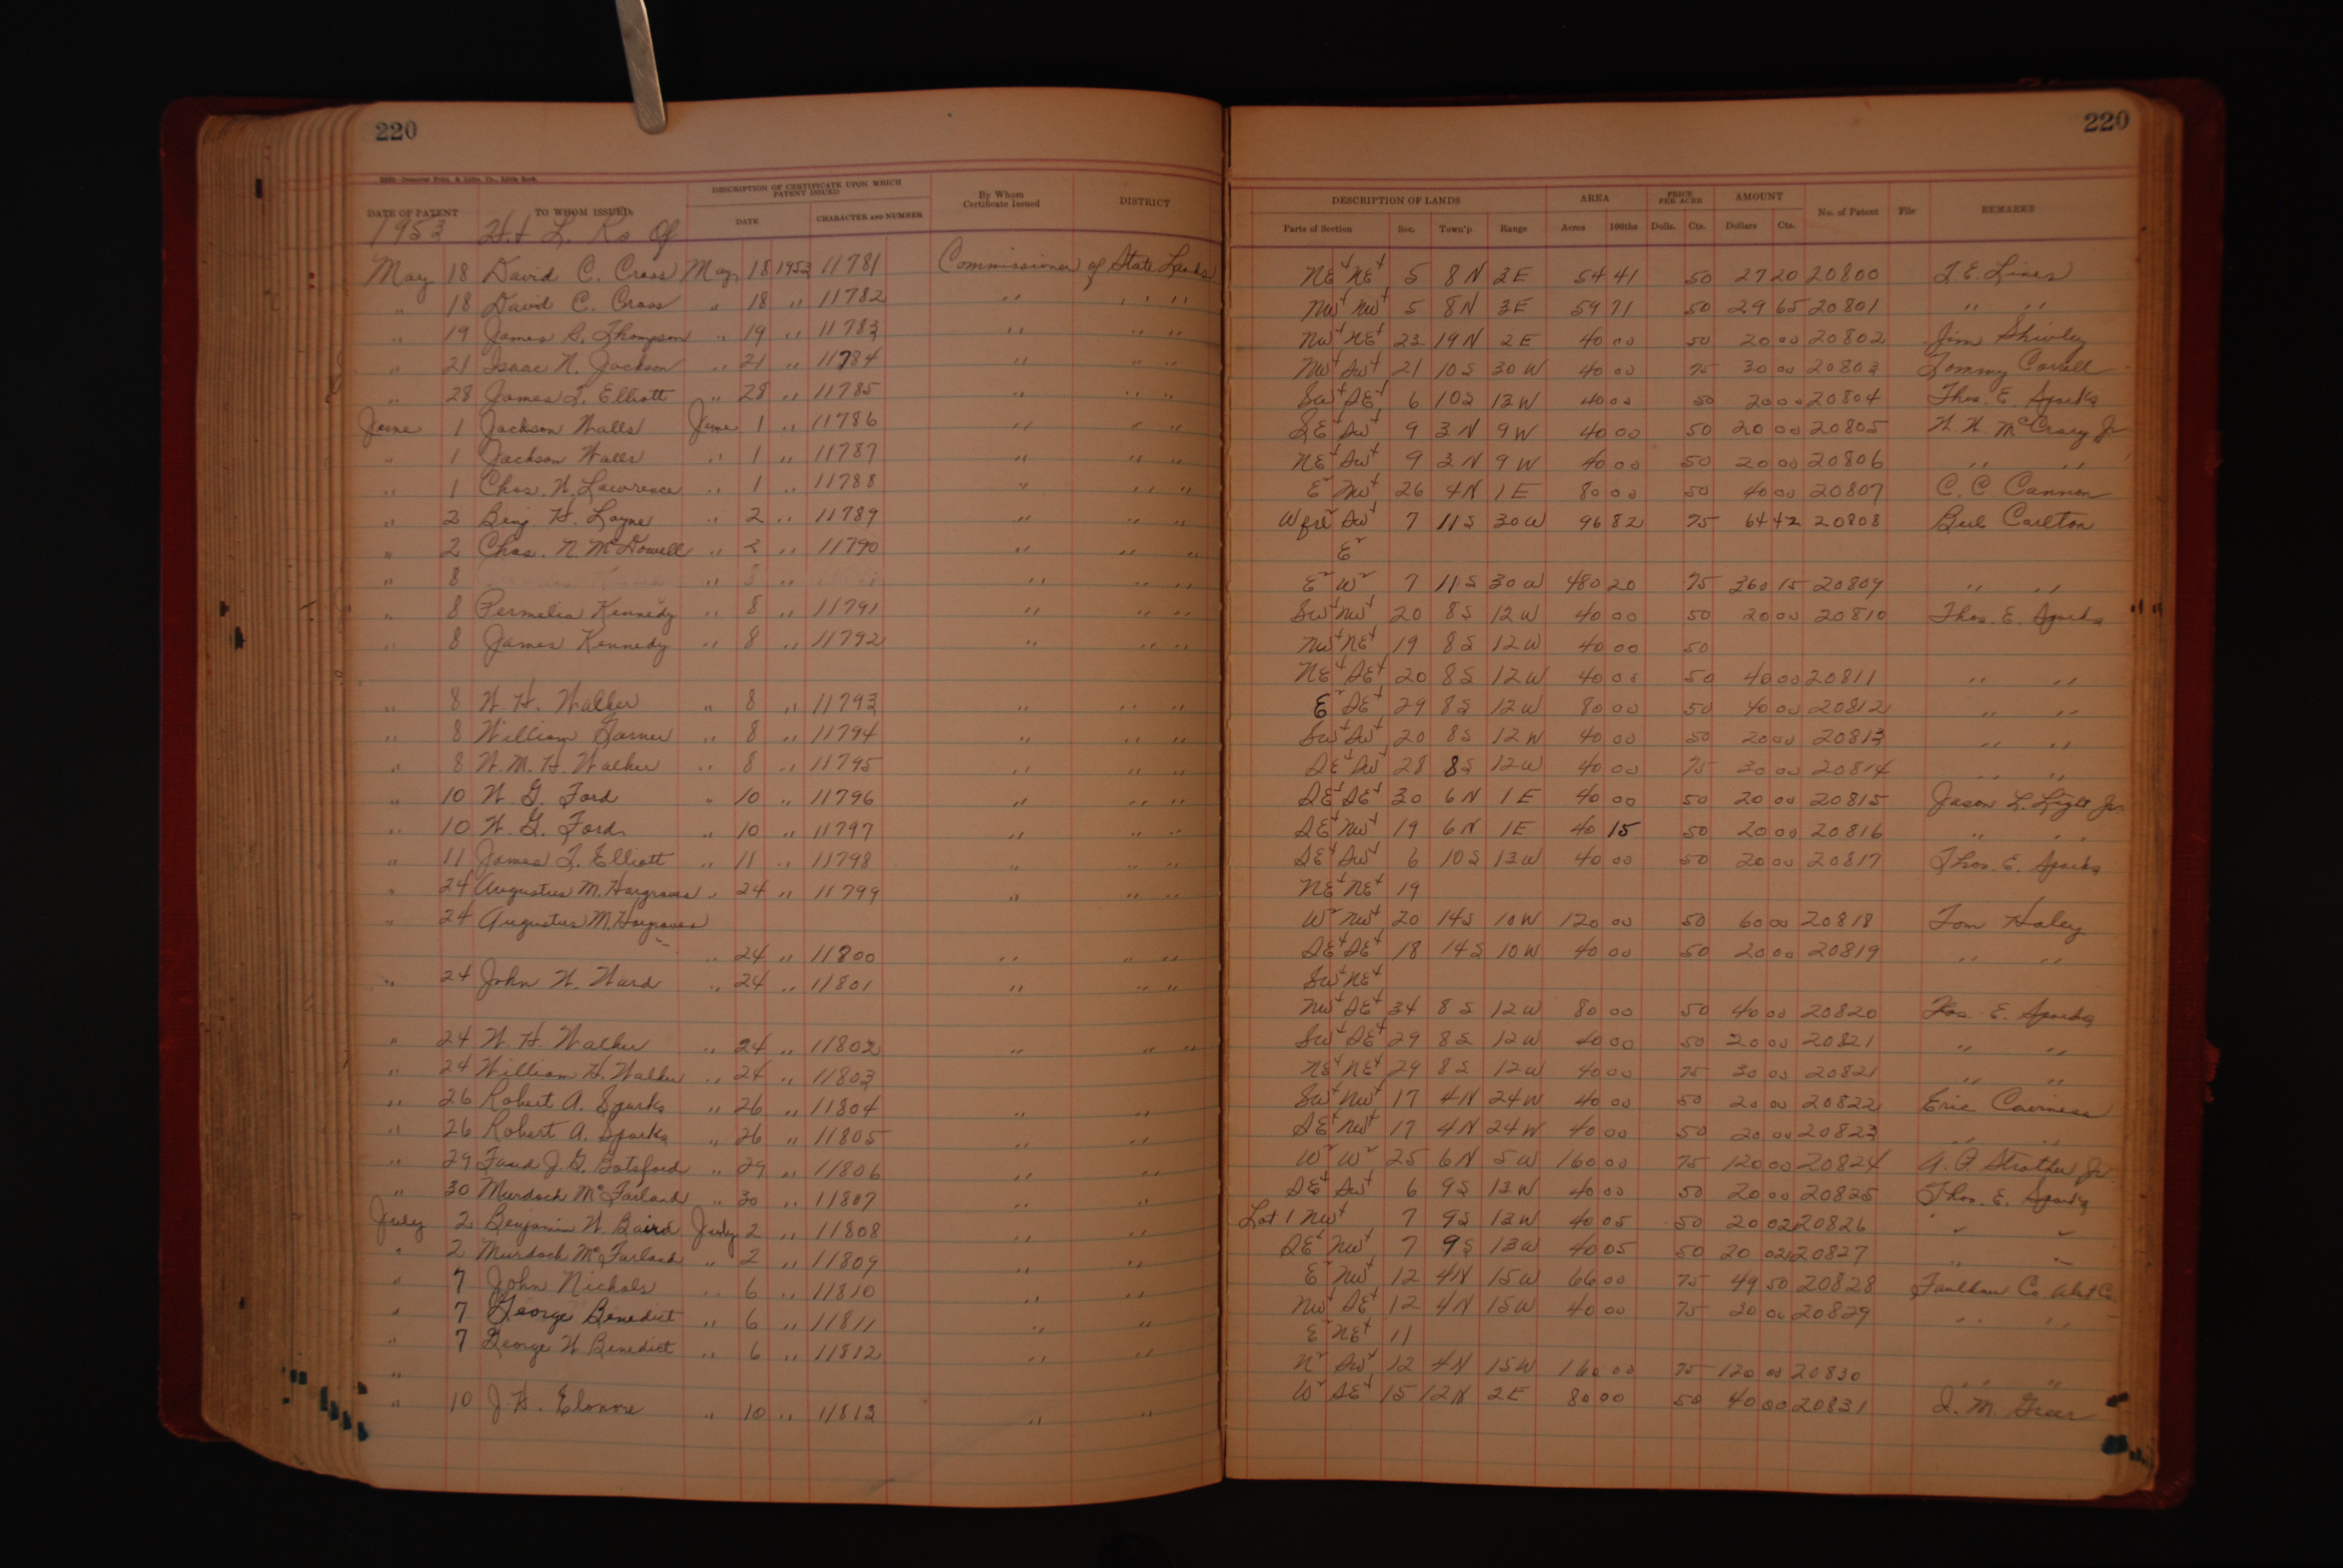 220
DATE OF PATENT TO WHOM ISSUED DESCRIPTION OF CERTIFICATE UPON WHICH PATENT ISSUED By Whom Certificate Issued DISTRICT
DATE CHARACTER AND NUMBER
1953 Ht L. Rs Of
May 18 David C. Cross May 18 1953 11781 Commissioner of State Lands
" 18 David C. Cross " 18 " 11782 " " "
" 19 James S. Thompson " 19 " 11783 " " "
" 21 Isaac N. Jackson " 21 " 11784 " " "
" 28 James L. Elliott " 28 " 11785 " " "
June 1 Jackson Walls June 1 " 11786 " " "
" 1 Jackson Walls " 1 " 11787 " " "
" 1 Chas. W. Lawrence " 1 " 11788 " " "
" 2 Benj. H. Layne " 2 " 11789 " " "
" 2 Chas. N. McDowell " 2 " 11790 " " "
" 8 " " " " "
" 8 Permelia Kennedy " 8 " 11791 " " "
" 8 James Kennedy " 8 " 11792 " " "
" 8 W. H. Walker " 8 " 11793 " " "
" 8 William Garner " 8 " 11794 " " "
" 8 W. M. H. Walker " 8 " 11795 " " "
" 10 W. G. Ford " 10 " 11796 " " "
" 10 W. G. Ford " 10 " 11797 " " "
" 11 James L. Elliott " 11 " 11798 " " "
" 24 Augustus M. Hargraves " 24 " 11799 " " "
" 24 Augustus M. Hargraves
" 24 " 11800 " " "
" 24 John W. Ward " 24 " 11801 " " "
" 24 W. H. Walker " 24 " 11802 " " "
" 24 William H. Walker " 24 " 11803
" 26 Robert A. Sparks " 26 " 11804 " "
" 26 Robert A. Sparks " 26 " 11805 " "
" 29 J. G. Botsford " 29 " 11806 " "
" 30 Murdock McFarland " 30 " 11807 " "
July 2 Benjamin W. Baird July 2 " 11808 " "
" 2 Murdock McFarland " 2 " 11809 " "
" 7 John Nichols " 6 " 11810 " "
" 7 George Benedict " 6 " 11811 " "
" 7 George W Benedict " 6 " 11812 " "
"
" 10 J. H. Elmore " 10 " 11813 " "
220
DESCRIPTION OF LANDS AREA PRICE PER ACRE AMOUNT No. of Patent File REMARKS
Parts of Section Sec. Town'p Range Acres 100ths Dolls. Cts. Dollars Cts.
NE4 NE4 5 8N 3E 54 41 50 27 20 20800 T. E. Lines
NW4 NW4 5 8N 3E 59 71 50 29 65 20801 " "
NW4 NE4 23 19N 2E 40 00 50 20 00 20802 Jim Shivley
NW4 SW4 21 10S 30W 40 00 75 30 00 20803 Tommy Correll
SW4 SE4 6 10S 13W 40 00 50 20 00 20804 Thos. E. Sparks
SE4 SW4 9 3N 9W 40 00 50 20 00 20805 W. W. McCrary Jr
NE4 SW4 9 3N 9W 40 00 50 20 00 20806 " "
E2 NW4 26 4N 1E 80 00 50 40 00 20807 C. C. Cannon
W frl2 SW4 7 11S 30W 96 82 75 64 42 20808 Bul Carlton
E2
E2 W2 7 11S 30W 480 20 75 360 15 20809 " "
SW4 NW4 20 8S 12W 40 00 50 20 00 20810 Thos. E. Sparks
NW4 NE4 19 8S 12W 40 00 50
NE4 SE4 20 8S 12W 40 00 50 40 00 20811 " "
E2 SE4 29 8S 12W 80 00 50 40 00 20812 " "
SW4 SW4 20 8S 12W 40 00 50 20 00 20813 " "
SE4 SW4 28 8S 12W 40 00 75 30 00 20814 " "
SE4 SE4 30 6N 1E 40 00 50 20 00 20815 Jason L. Light Jr
SE4 NW4 19 6N 1E 40 15 50 20 00 20816 " "
SE4 SW4 6 10S 13W 40 00 50 20 00 20817 Thos. E. Sparks
NE4 NE4 19
W2 NW4 20 14S 10W 120 00 50 60 00 20818 Tom Haley
SE4 SE4 18 14S 10W 40 00 50 20 00 20819 " "
SW4 NE4
NW4 SE4 34 8S 12W 80 00 50 40 00 20820 Thos. E. Sparks
SW4 SE4 29 8S 12W 40 00 50 20 00 20821 " "
NE4 NE4 29 8S 12W 40 00 75 30 00 20821 " "
SW4 NW4 17 4N 24W 40 00 50 20 00 20822 Eric Caviness
SE4 NW4 17 4N 24W 40 00 50 20 00 20823 " "
W2 W2 25 6N 5W 160 00 75 120 00 20824 A. P. Strother Jr.
SE4 SW4 6 9S 13W 40 00 50 20 00 20825 Thos. E. Sparks
Lot 1 NW4 7 9S 13W 40 05 50 20 02 20826 " "
SE4 NW4 7 9S 13W 40 05 50 20 02 20827 " "
E2 NW4 12 4N 15W 66 00 75 49 50 20828 Faulkner Co. Abst Co.
NW4 SE4 12 4N 15W 40 00 75 30 00 20829 " "
E2 NE4 11
N2 SW4 12 4N 15W 160 00 75 120 00 20830 " "
W2 SE4 15 12N 2E 80 00 50 40 00 20831 I. M. Greer